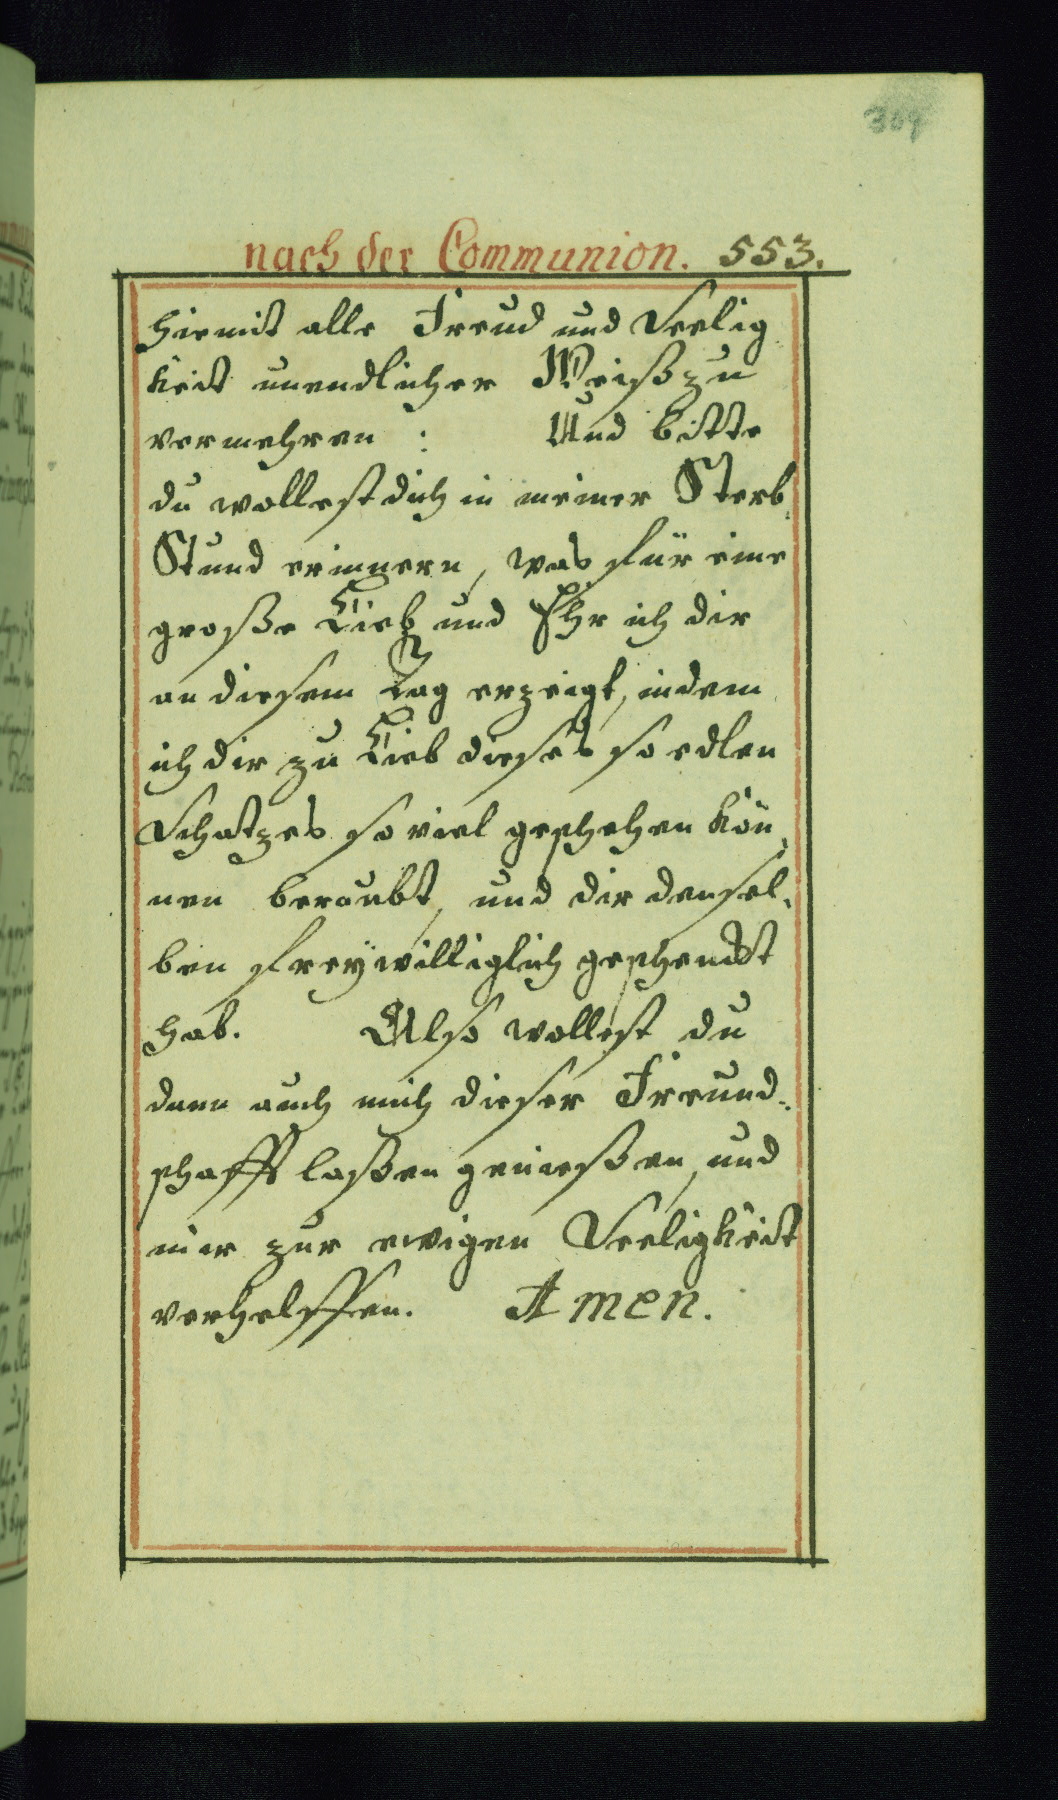 309
nach der Communion. 553.
hiemit alle Freud und Seelig
keit unendlicher Weiß zu
vermehren : Und bitte
du wollest dich in meiner Sterb
Stund erinnern, was für eine
große Lieb und Ehr ich dir
an diesem Tag erzeigt, indem
ich dir zu Lieb dieses so edlen
Schatzes so viel geschehen kön
nen beraubt, und dir densel-
ben freÿwilliglich geschenckt
hab. Also wollest du
dann auch mich dieser Freund-
schafft laßen genießen, und
mir zur ewigen Seeligkeit
verhelffen. Amen.